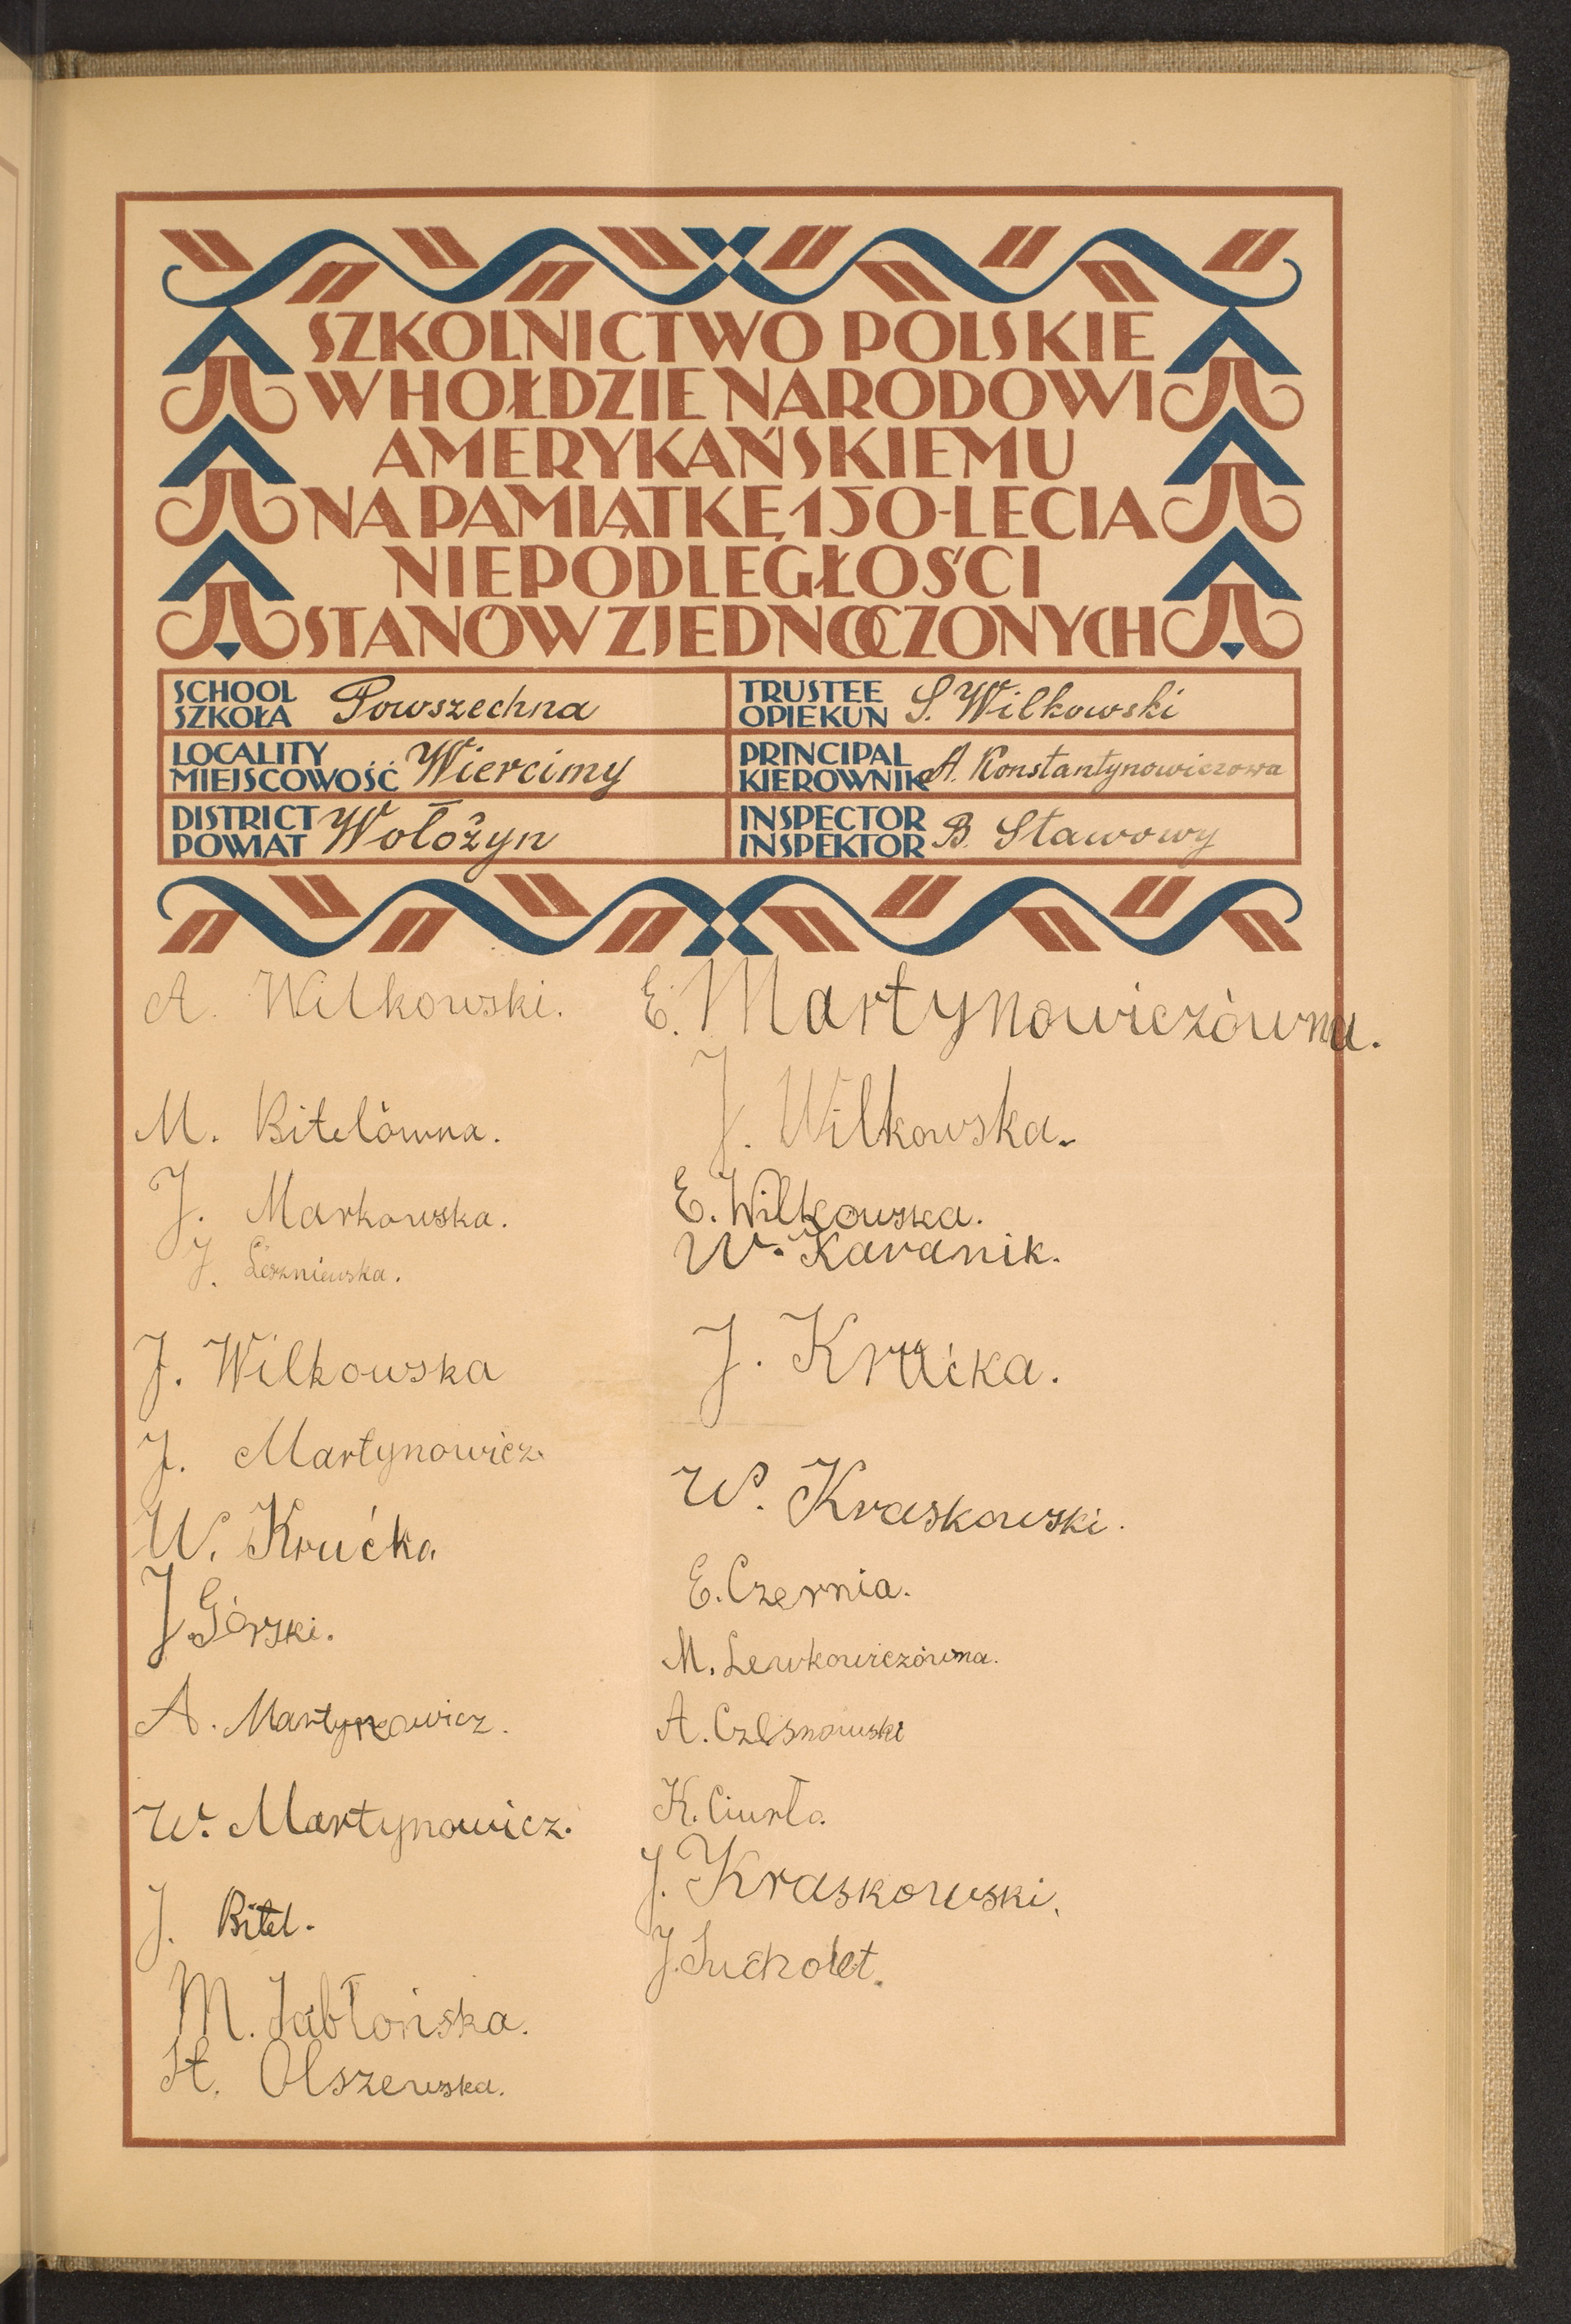 SZKOLNICTWO POLSKIE
W HOŁDZIE NARODOWI
AMERYKAŃSKIEMU
NA PAMIĄTKĘ 150-LECIA
NIEPODLEGŁOŚCI
STANÓW ZJEDNOCZONYCH
SCHOOL
SZKOŁA Powszechna
TRUSTEE
OPIEKUN S. Wilkowski
LOCALITY
MIEJSCOWOŚĆ Wiercimy
PRINCIPAL
KIEROWNIK A. Konstantynowiczowa
DISTRICT
POWIAT Wołożyn
INSPECTOR
INSPEKTOR B. Stawowy
A. Wilkowski.
M. Bitelówna.
J. Markowska.
J. Leszniewska.
J. Wilkowska
J. Martynowicz.
W. Krućka
J. Górski.
A. Martynowicz.
W. Martynowicz.
J. Bitel.
M. Jabłońska.
H. Olszewska.
E. Martynowiczówna.
J. Wilkowska.
E. Wilkowska.
W. Karanik.
J. Krućka.
W. Kraskowski.
E. Czernia.
M. Lewkowiczówna.
A. Czesnowski
K. Ciurla.
J. Kraskowski.
J. Sucholet.